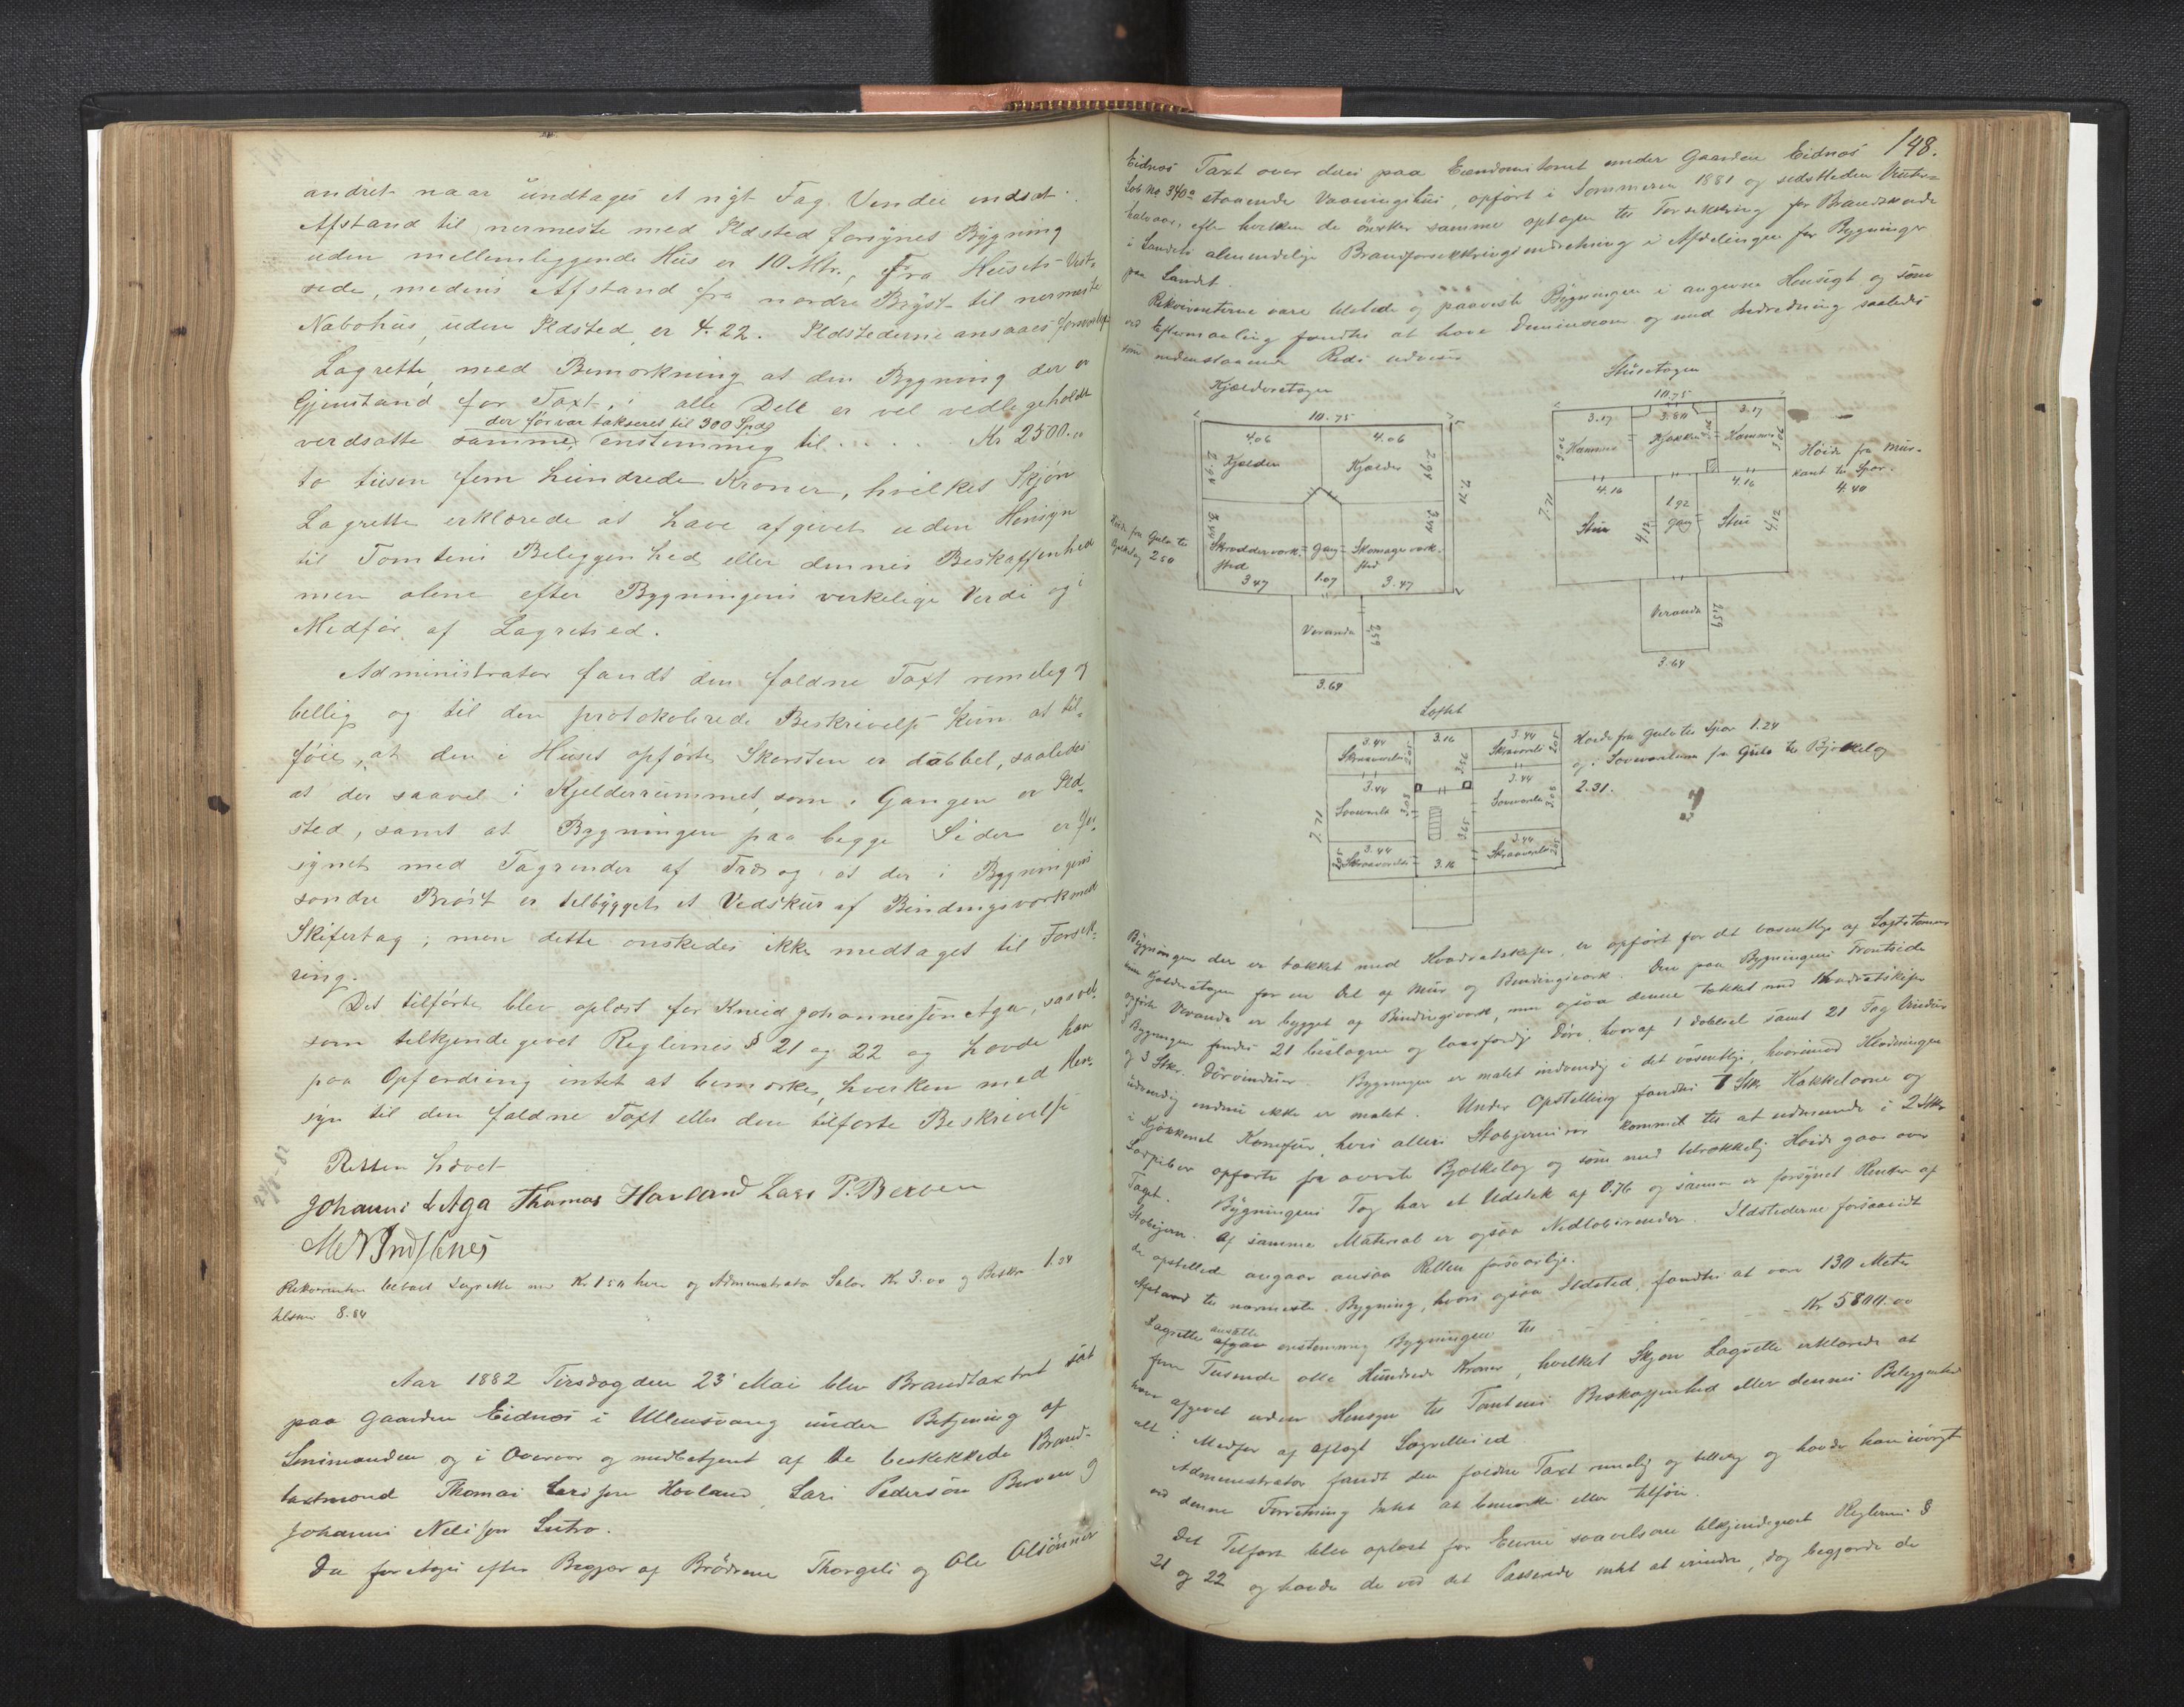 andret naar undtages et nyt Fag Vindue indsat.
Afstand til nermeste med Ildsted forsynes Bygning
uden mellemliggende Hus er 10 Mtr., fra Husets Vest-
side, medens Afstand fra nordre Bryst til nermeste
Nabohus, uden Ildsted, er 4.22. Ildstederne ansaaes forsvarlige
Lagrette, med Bemerkning at den Bygning der er
Gjenstand for Taxt, i alle Dele er vel vedligeholdt
der før var takseret til 300 Spdl
verdsatte samme, enstemmig til . . . . . Kr 2500.00
to tusen fem hundrede Kroner, hvilket Skjøn
Lagrette erklærede at have afgivet uden Hensyn
til Tomtens Beleggenhed eller dennes Beskaffenhed
men alene efter Bygningens verkelige Verdi og i
Medfør af Lagretsed.
Administrator fandt den faldne Taxt rimelig og
billig og til den protokolerede Beskrivelse kun at til-
føie, at den i Huset opførte Skorsten er dobbel, saaledes
at der saavel i Kjelderrummet, som i Gangen er Ild-
sted, samt at Bygningen paa begge Sider er for-
synet med Tagrender af Træ og at der i Bygningens
søndre Brøst er tilbygget et Vedskur af Bindingsverk med
Skifertag; men dette ønskedes ikke medtaget til Forsik-
ring.
Det tilførte blev oplæst for Kneid Johannessøn Aga, saavel
som tilkjendegivet Reglernes § 21 og 22 og havde han
paa Opfordring intet at bemerke, hverken med Hen-
syn til den faldne Taxt eller den tilførte Beskrivelse
Retten hævet
Johannes L Aga Thomas Hovland Lars P. Berven
Rekvirenten betalt Lagrette med Kr 1.50 hver og Administrator Salær Kr 3.00 og Beskr 1.34
tilsam 8.84
Aar 1882 Tirsdag den 23' Mai blev Brandtaxtret sat
paa Gaarden Eidnes i Ullensvang under Betjening af
Lensmanden og i Overvær og medbetjent af de beskikkede Brand-
taxtmænd Thomas Larssen Hovland, Lars Pedersøn Berven og
Johannes Nelssen Lutro.
Da foretoges efter Begjær af Brødrene Thorgels og Ole Olsønner
148.
Eidnes Taxt over deres paa Eiendomstomt under Gaarden Eidnes
Løb No 340a staaende Vaaningshus, opført i Sommeren 1881 og sidstleden Vinter-
halvaar, efter hvilken de ønsker samme optagen til Forsikkring for Brandskade
i Landets almindelige Brandforsikkringsindretning i Afdelingen for Bygninger
paa Landet.
Rekvirenterne vare tilstede og paaviste Bygningen i angivne Hensigt og som
ved Eftermaaling fandtes at have Dimension og med Indretning saaledes
som nedenstaaende Rids udviser
Kjælderetagen
10.75
4.06 4.06
Kjelder Kjælder
2.94 2.94
7.71
3.44 3.44
Skrædderverk- Gang Skomagerverk-
sted sted
3.47 1.07 3.47
Veranda
2.59
3.64
Høide fra Gulv til
Bjelkelag 2.50
Stueetagen
10.75
3.17 3.80 3.17
Kammer Kjøkken Kammer
4.16 1.92 4.16
Stue Gang Stue
4.12 4.12
7.71
Veranda
2.59
3.64
Høide fra Mur-
kant til Spær.
4.40
Loftet
3.44 3.16 3.44
Skraaværelse Skraaværelse
3.44 3.44
Soveværelse Soveværelse
3.08 3.08
7.71
3.44 3.44
Skraaværelse 3.16 Skraaværelse
Høide fra Gulv til Spær 1.24
og i Soveværelserne fra Gulv til Bjelkelag
2.31.
Bygningen der er tækket med Kvadratskifer, er opført for det væsentlige af Laftetømmer
men Kjælderetagen for en Del af Mur og Bindingsværk. Den paa Bygningens Frontside
opførte Veranda er bygget af Bindingsværk, men ogsaa denne tækket med Kvadratskifer
I Bygningen findes 21 beslagne og laasfærdige Døre, hvoraf 1 dobbel samt 21 Fag Vinduer
og 3 Stkr. Dørvinduer. Bygningen er malet indvendig i det væsentlige, hvorimod Klædningen
udvendig endnu ikke er malet. Under Opstilling fandtes 7 Stk Kakkelovne og
i Kjøkkenet Komfur, hvis alles Støbjernsrør kommer til at udmunde i 2 Stkr
opførte fra øverste Bjelkelag og som med tilstrækkelig Høide gaar over
Taget. Bygningens Tag har et Udstik af 0.76 og samme er forsynet Render af
Støbjern. Af samme Material er ogsaa Nedløbsrender. Ildstederne forsaavidt
de opstillede angaar ansaa Retten forsvarlige.
Afstand til nærmeste Bygning, hvori ogsaa Ildsted, fandtes at være 130 Meter
Lagrette ansatte enstemmig Bygningen til - - - - - Kr 5800.00
fem Tusende otte Hundrede Kroner, hvilket Skjøn Lagrette erklærede at
have afgivet uden Hensyn til Tomtens Beskaffenhed eller dennes Beliggenhed
alt i Medfør af aflagt Lagrettesed
Administrator fandt den faldne Taxt rimelig og billig og havde han iøvrigt
ved denne Forretning intet at bemærke eller tilføie.
Det Tilførte blev oplæst for Eierne saavelsom tilkjendegivet Reglernes §
21 og 22 og havde de ved det Passerede intet at erindre, dog begjærede de